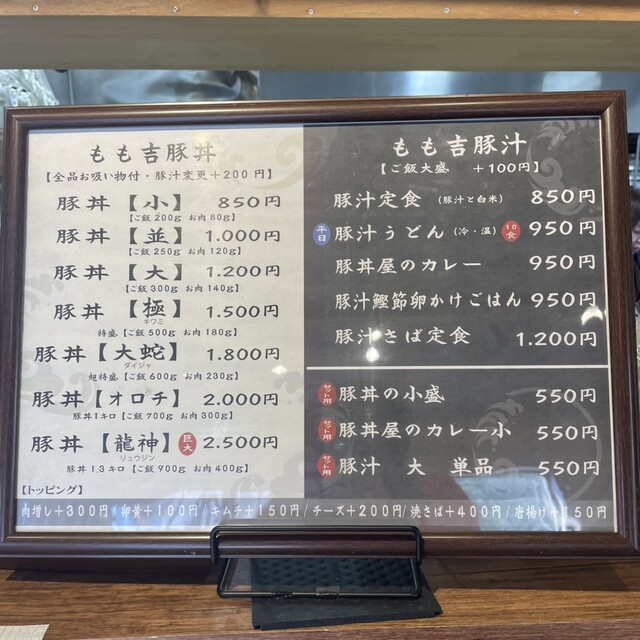 もも吉豚丼
【全品お吸い物付・豚汁変更＋200円】
豚丼【小】 850円
【ご飯200g お肉80g】
豚丼【並】 1.000円
【ご飯250g お肉120g】
豚丼【大】 1.200円
【ご飯300g お肉140g】
豚丼【極】 1.500円
キワミ
特盛【ご飯500g お肉180g】
豚丼【大蛇】 1.800円
ダイジャ
超特盛【ご飯600g お肉230g】
豚丼【オロチ】 2.000円
豚丼1キロ【ご飯700g お肉300g】
豚丼【龍神】 巨大 2.500円
リュウジン
豚丼1.3キロ【ご飯900g お肉400g】
【トッピング】
もも吉豚汁
【ご飯大盛 ＋100円】
豚汁定食（豚汁と白米） 850円
平日 豚汁うどん（冷・温） 10食 950円
豚丼屋のカレー 950円
豚汁鰹節卵かけごはん 950円
豚汁さば定食 1.200円
セット用 豚丼の小盛 550円
セット用 豚丼屋のカレー小 550円
セット用 豚汁 大 単品 550円
肉増し＋300円/卵黄＋100円/キムチ＋150円/チーズ＋200円/焼さば＋400円/唐揚げ＋150円